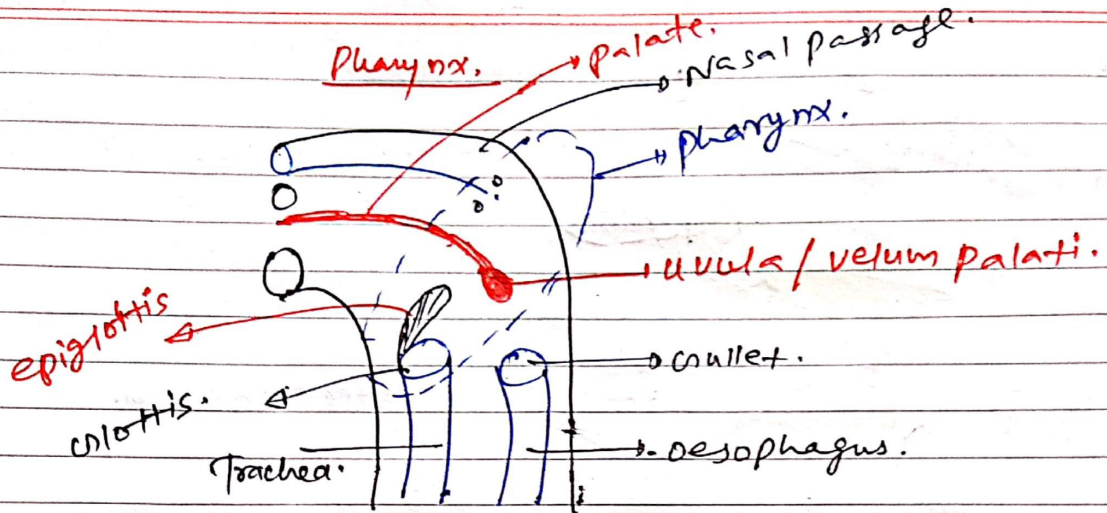 Pharynx.
palate.
Nasal passage.
pharynx.
uvula / velum palati.
epiglottis
Gullet.
Glottis.
Trachea.
oesophagus.